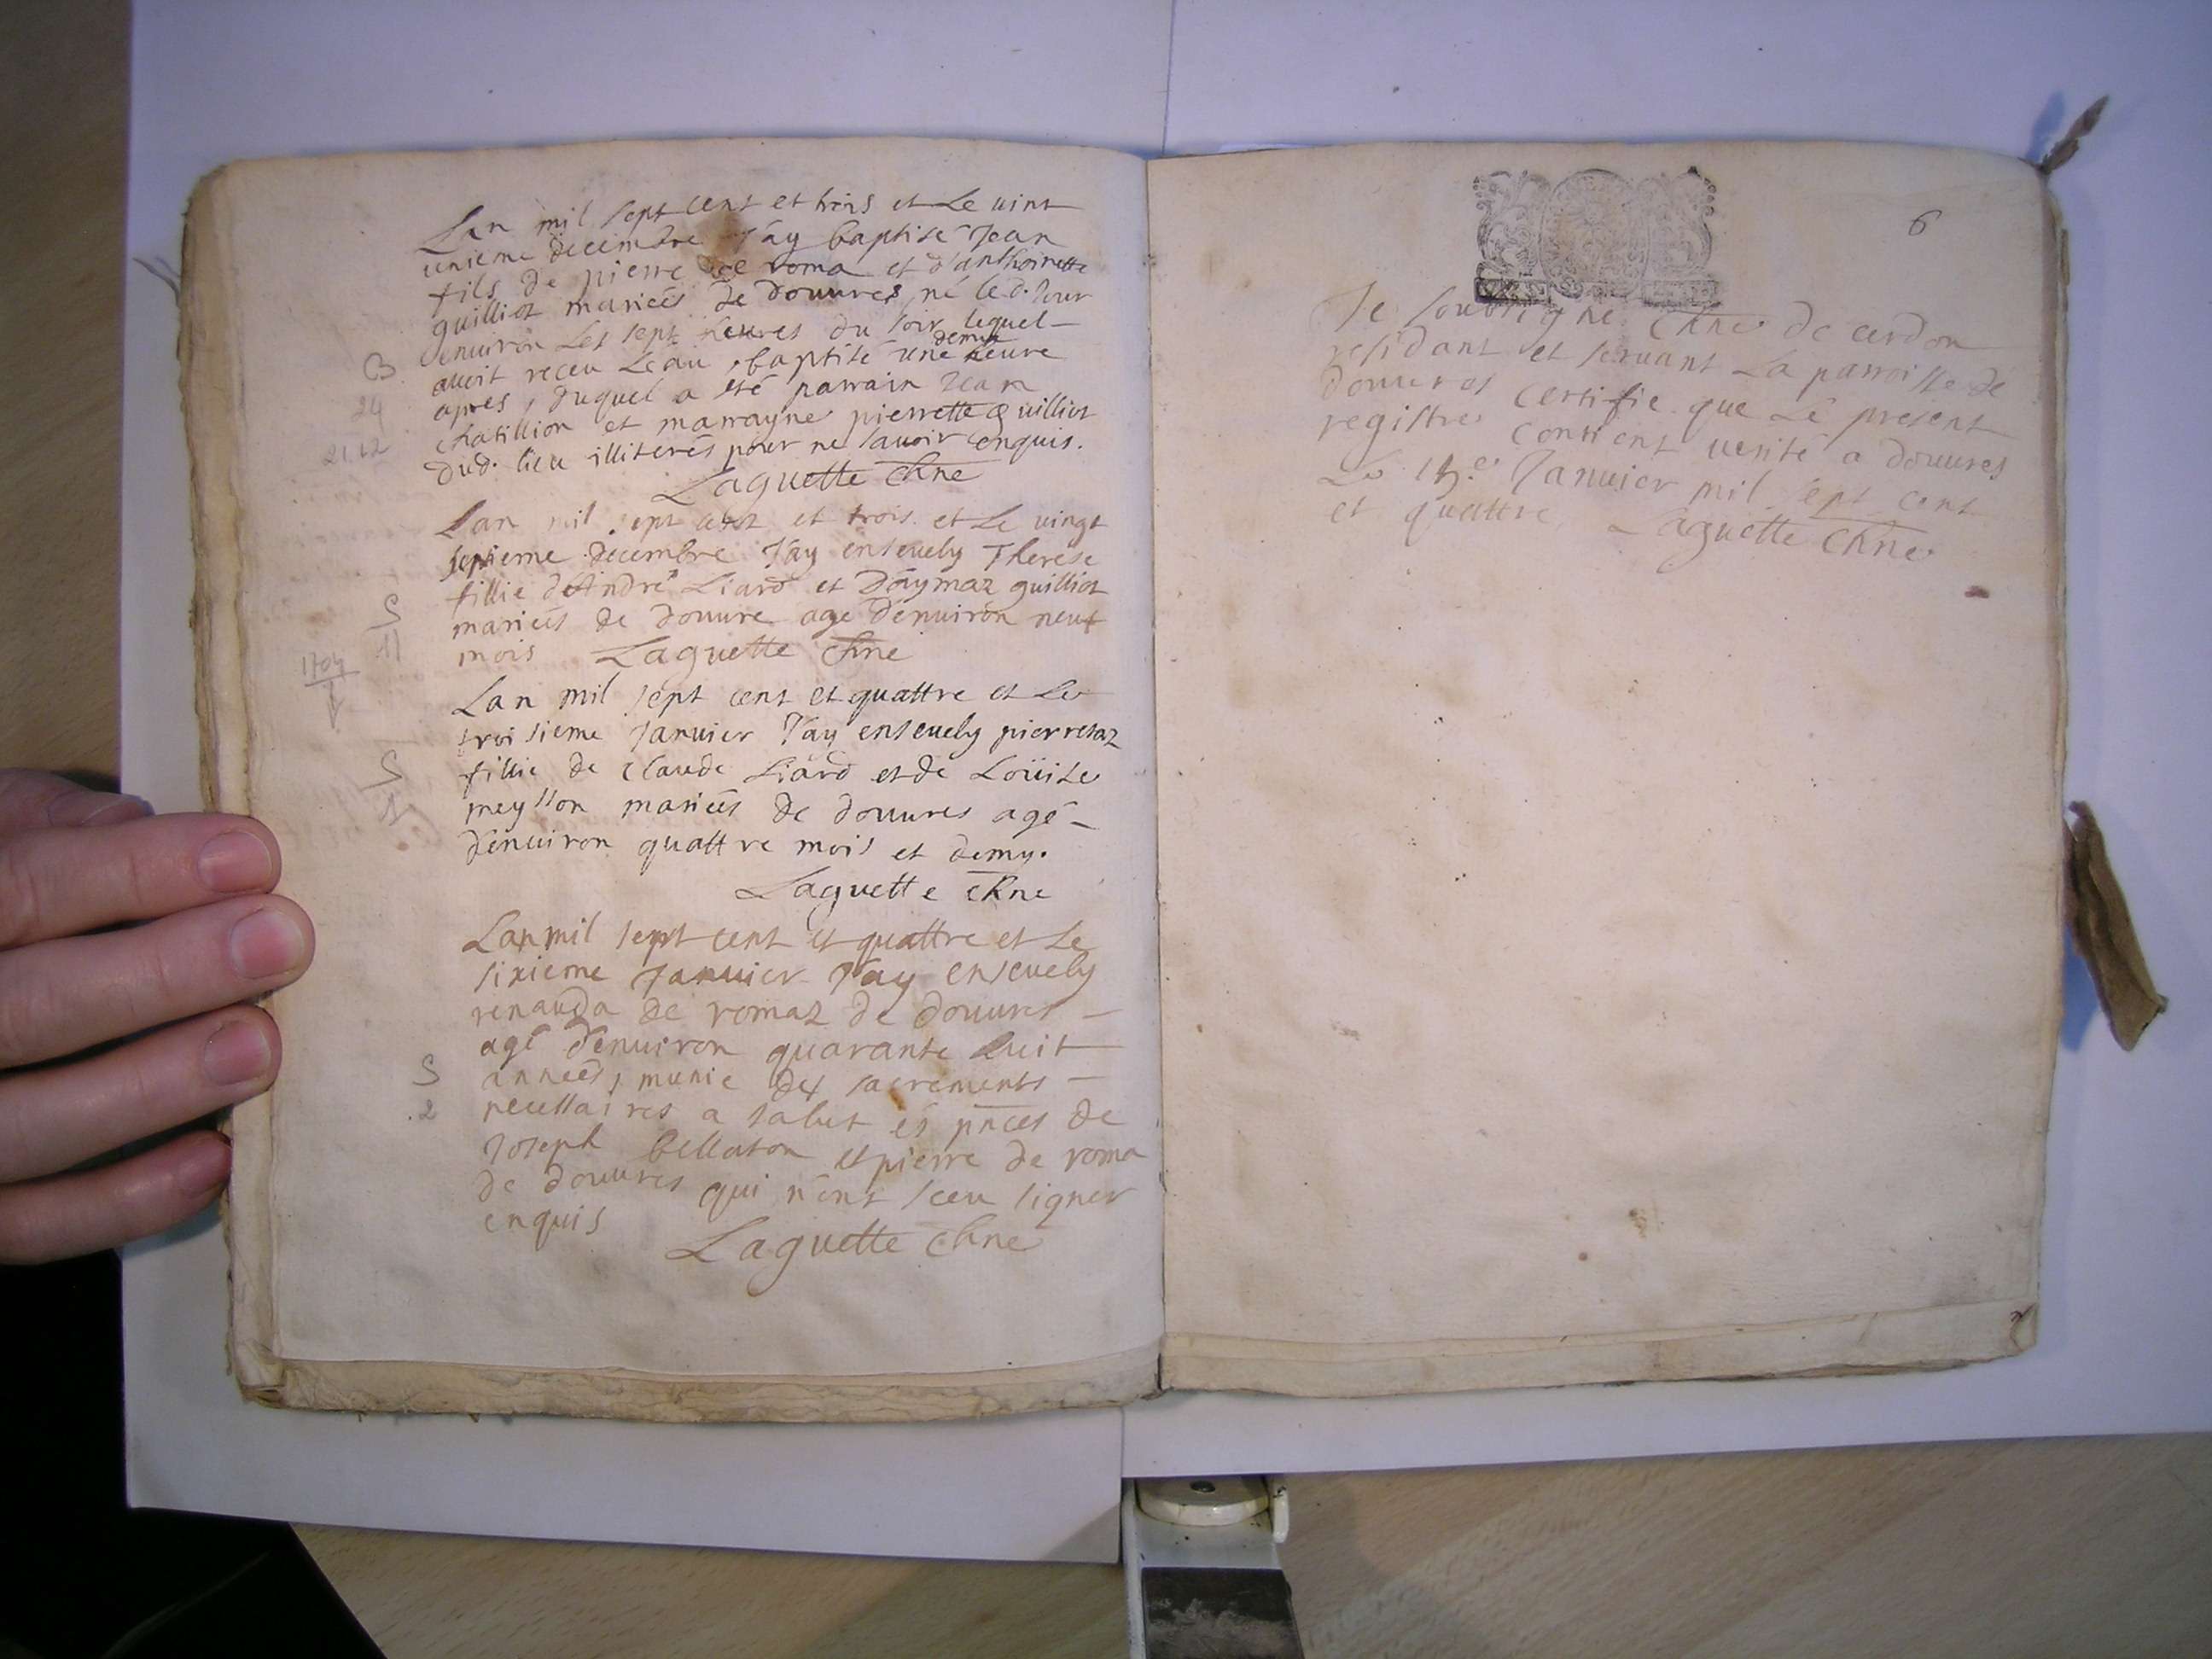 Lan mil sept cent et trois et Le vint
unieme decembre Jay baptisé Jean
fils de pierre de roma et d'anthoinette
guilliot mariées de douures né led. Jour
enuiron Les sept heures du soir lequel
auoit receu Leau, baptisé une demy heure
B
apres, duquel a été parrain Jean
24
chatillion et marrayne pierrette guilliot
21.12
dud. lieu illiterés pour ne sauoir enquis.
Laguette chne
Lan mil sept cent et trois et Le vingt
septieme decembre Jay enseuely Therese
fillie de André Liard et Daymaz guilliot
S
mariées de douure age denuiron neuf
11
mois Laguette chne
1704
Lan mil sept cent et quattre et Le
troisieme Januier Jay enseuely pierretaz
S
fillie de claude Liard et de Loüise
1
meysson mariées de douures agé
denuiron quattre mois et demy.
Laguette chne
Lan mil sept cent et quattre et Le
sixieme Januier Jay enseuely
renauda de romaz de douures
agé denuiron quarante huit
S
années, munie des sacrements
2
necessaires a salut és pnces de
Joseph bellaton et pierre de roma
de douures qui n'ont sceu signer
enquis
Laguette chne
6
Je soubsigne chne de cerdon
residant et seruant La parroisse de
douures certifie que Le present
registre contient verité a douures
Le Januier mil sept cent
et quattre Laguette chne